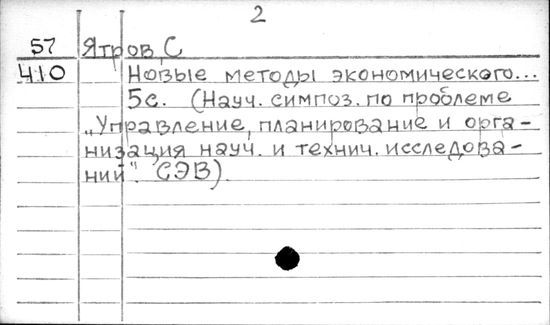 2
57 Ятров, С
410 Новые методы экономического...
5с. (Науч. симпоз. по проблеме
„Управление, планирование и орга-
низация науч. и технич. исследова-
ний". СЭВ).